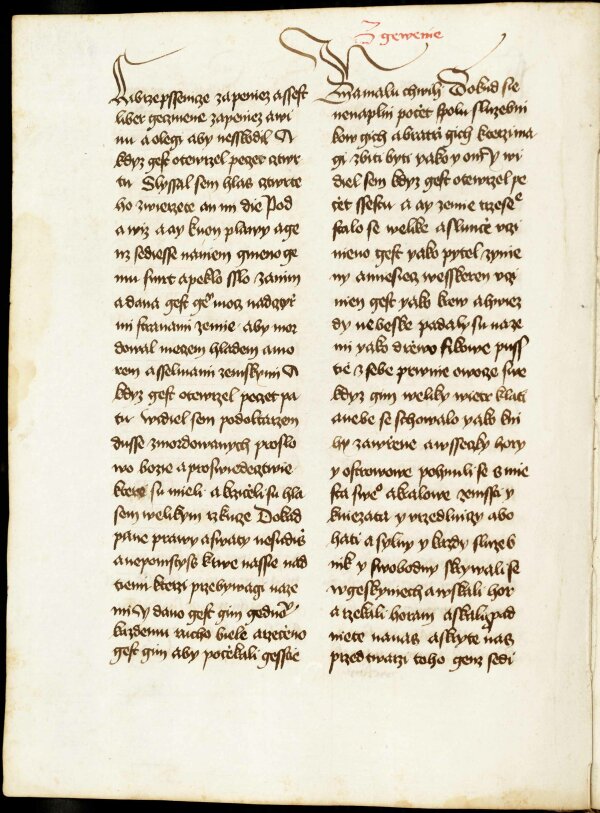 Z gewenie
A brze pssenicze za peniez a ssest
liber geczmene za peniez a wi
nu a olegi aby nesskodil A
kdyz gest otewrzel peczet cztwr
tu Slyssal sem hlas cztwrte
ho zwierzete an mi die Pod
a wiz a ay kuon plawy a ge
nz sediesse na niem gmeno ge
mu smrt a peklo sslo za nim
a dana gest geo mocz nad cztyr
mi stranami zemie aby mor
dowal meczem hladem a mo
rem a sselmami zemskymi A
kdyz gest otewrzel peczet pa
tu widiel sem pod oltarzem
dusse zmordowanych pro slo
wo bozie a pro swiedecztwie
kterez su mieli a krziczeli su hla
sem welikym rzkucze Dokad
pane prawy a swaty nesudiss
a nepomstyss krwe nassie nad
tiemi kterzi przebywagi na ze
mi Y dano gest gim gednomu
kazdemu rucho biele a rzeczeno
gest gim aby poczekali gesscze
Na malu chwili Dokud sie
nenaplni poczet spolu sluzebni
kow gich a bratrzi gich kterzi ma
gi zbiti byti yako y oni Y wi
diel sem kdyz gest otewrzel pe
czet ssestu a ay zemie trzesenie
stalo se welike a slunce vczi
nieno gest yako pytel zynie
ny a miesiecz wessketen vczi
nien gest yako krew a hwiez
dy nebeske padaly su na ze
mi yako drzewo fikowe puss
tie z sebe prwnie owocze swe
kdyz gim weliky wietr klati
a nebe se schowalo yako kni
hy zawrzene a wsseczky hory
y ostrowowe pohnuli se z mie
sta sweo a kralowe zemssti y
kniezata y vrzedlniczy a bo
hati a sylny y kazdy sluzeb
nik y swobodny skrywali se
w geskyniech a w skali hor
a rzekali horam a skali pad
niete na nas a skryte nas
przed twarzi toho genz sedi